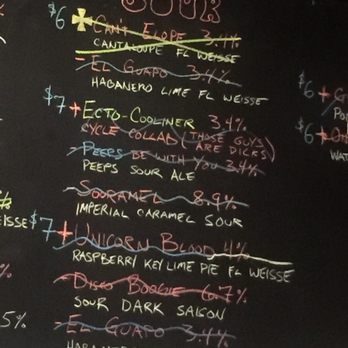 SOUR
$6 + CAN'T ELOPE 3.4%
CANTALOUPE FL WEISSE
- EL GUAPO 3.4%
HABANERO LIME FL WEISSE
$7 + ECTO-COOLINER 3.4%
CYCLE COLLAB (THOSE GUYS ARE DICKS)
- PEEPS BE WITH YOU 3.4%
PEEPS SOUR ALE
- SOURAMEL 8.9%
IMPERIAL CARAMEL SOUR
$7 + UNICORN BLOOD 4%
RASPBERRY KEY LIME PIE FL WEISSE
- DISCO BOOGIE 6.7%
SOUR DARK SAISON
- EL GUAPO 3.4%
$6 +
$6 +
EISSE
%
5%